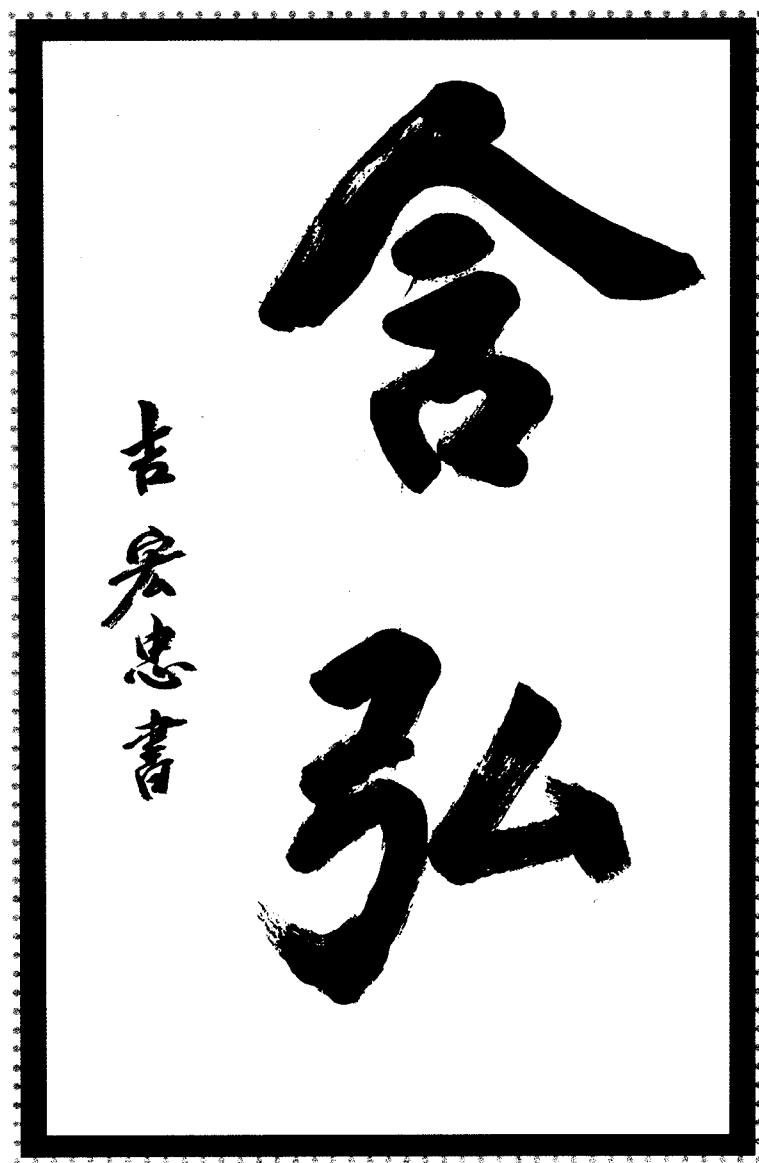 含弘
吉宏忠書